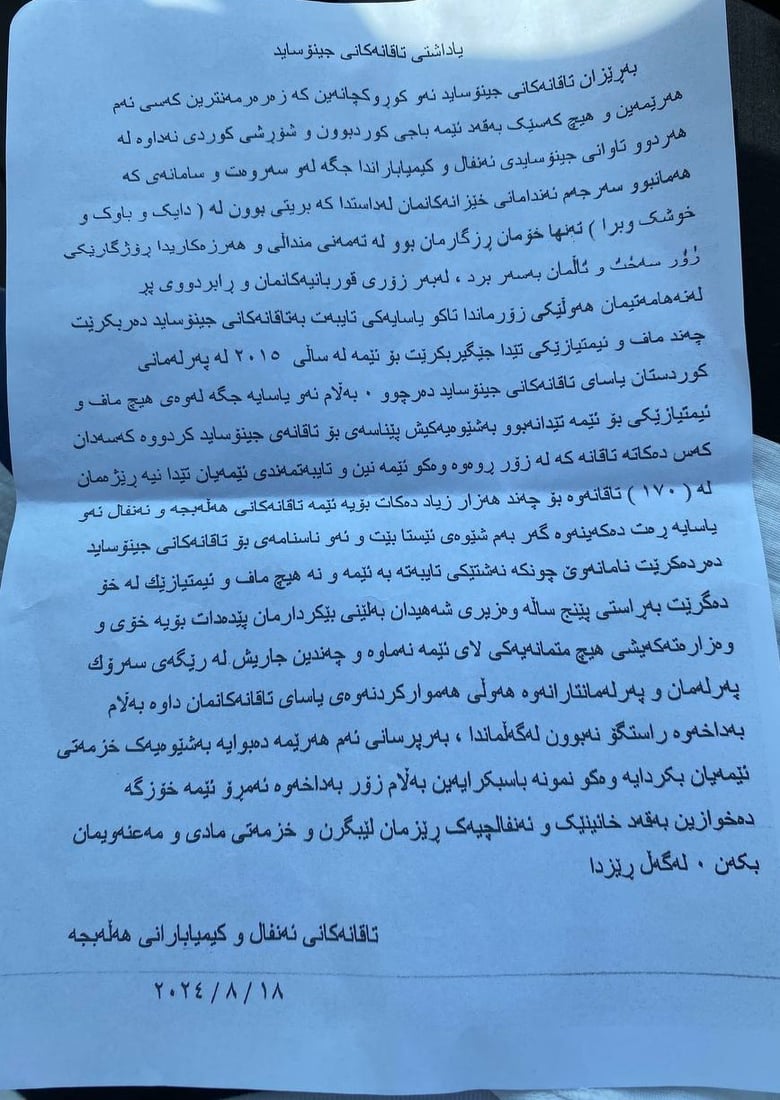 یاداشتی تاقانەکانی جینۆساید
بەڕێزان تاقانەکانی جینۆساید ئەو کوڕوکچانەین کە زەرەرمەنترین کەسی ئەم
هەرێمەین و هیچ کەسێک بەقەد ئێمە باجی کوردبوون و شۆڕشی کوردی نەداوە لە
هەردوو تاوانی جینۆسایدی ئەنفال و کیمیاباراندا جگە لەو سەروەت و سامانەی کە
هەمانبوو سەرجەم ئەندامانی خێزانەکانمان لەداستدا کە بریتی بوون لە ( دایک و باوک و
خوشک وبرا ) تەنها خۆمان ڕزگارمان بوو لە تەمەنی منداڵی و هەرزەکاریدا ڕۆژگارێکی
زۆر سەخت و ئاڵمان بەسەر برد ، لەبەر زۆری قوربانیەکانمان و ڕابردووی پڕ
لەنەهامەتیمان هەوڵێکی زۆرماندا تاکو یاسایەکی تایبەت بەتاقانەکانی جینۆساید دەربکرێت
چەند ماف و ئیمتیازێکی تێدا جێگیربکرێت بۆ ئێمە لە ساڵی ٢٠١٥ لە پەرلەمانی
کوردستان یاسای تاقانەکانی جینۆساید دەرچوو ٠ بەڵام ئەو یاسایە جگە لەوەی هیچ ماف و
ئیمتیازێکی بۆ ئێمە تێدانەبوو بەشێوەیەکیش پێناسەی بۆ تاقانەی جینۆساید کردووە کەسەدان
کەس دەکاتە تاقانە کە لە زۆر ڕوەوە وەکو ئێمە نین و تایبەتمەندی ئێمەیان تێدا نیە ڕێژەمان
لە ( ١٧٠ ) تاقانەوە بۆ چەند هەزار زیاد دەکات بۆیە ئێمە تاقانەکانی هەڵەبجە و ئەنفال ئەو
یاسایە ڕەت دەکەینەوە گەر بەم شێوەی ئێستا بێت و ئەو ناسنامەی بۆ تاقانەکانی جینۆساید
دەردەکرێت نامانەوێ چونکە نەشتێکی تایبەتە بە ئێمە و نە هیچ ماف و ئیمتیازێك لە خۆ
دەگرێت بەڕاستی پێنج ساڵە وەزیری شەهیدان بەڵێنی بێکردارمان پێدەدات بۆیە خۆی و
وەزارەتەکەیشی هیچ متمانەیەکی لای ئێمە نەماوە و چەندین جاریش لە رێگەی سەرۆك
پەرلەمان و پەرلەمانتارانەوە هەوڵی هەموارکردنەوەی یاسای تاقانەکانمان داوە بەڵام
بەداخەوە راستگۆ نەبوون لەگەڵماندا ، بەرپرسانی ئەم هەرێمە دەبوایە بەشێوەیەک خزمەتی
ئێمەیان بکردایە وەکو نمونە باسبکرایەین بەڵام زۆر بەداخەوە ئەمڕۆ ئێمە خۆزگە
دەخوازین بەقەد خائینێک و ئەنفالچیەک ڕێزمان لێبگرن و خزمەتی مادی و مەعنەویمان
بکەن ٠ لەگەڵ ڕێزدا
تاقانەکانی ئەنفال و کیمیابارانی هەڵەبجە
٢٠٢٤ / ٨ / ١٨